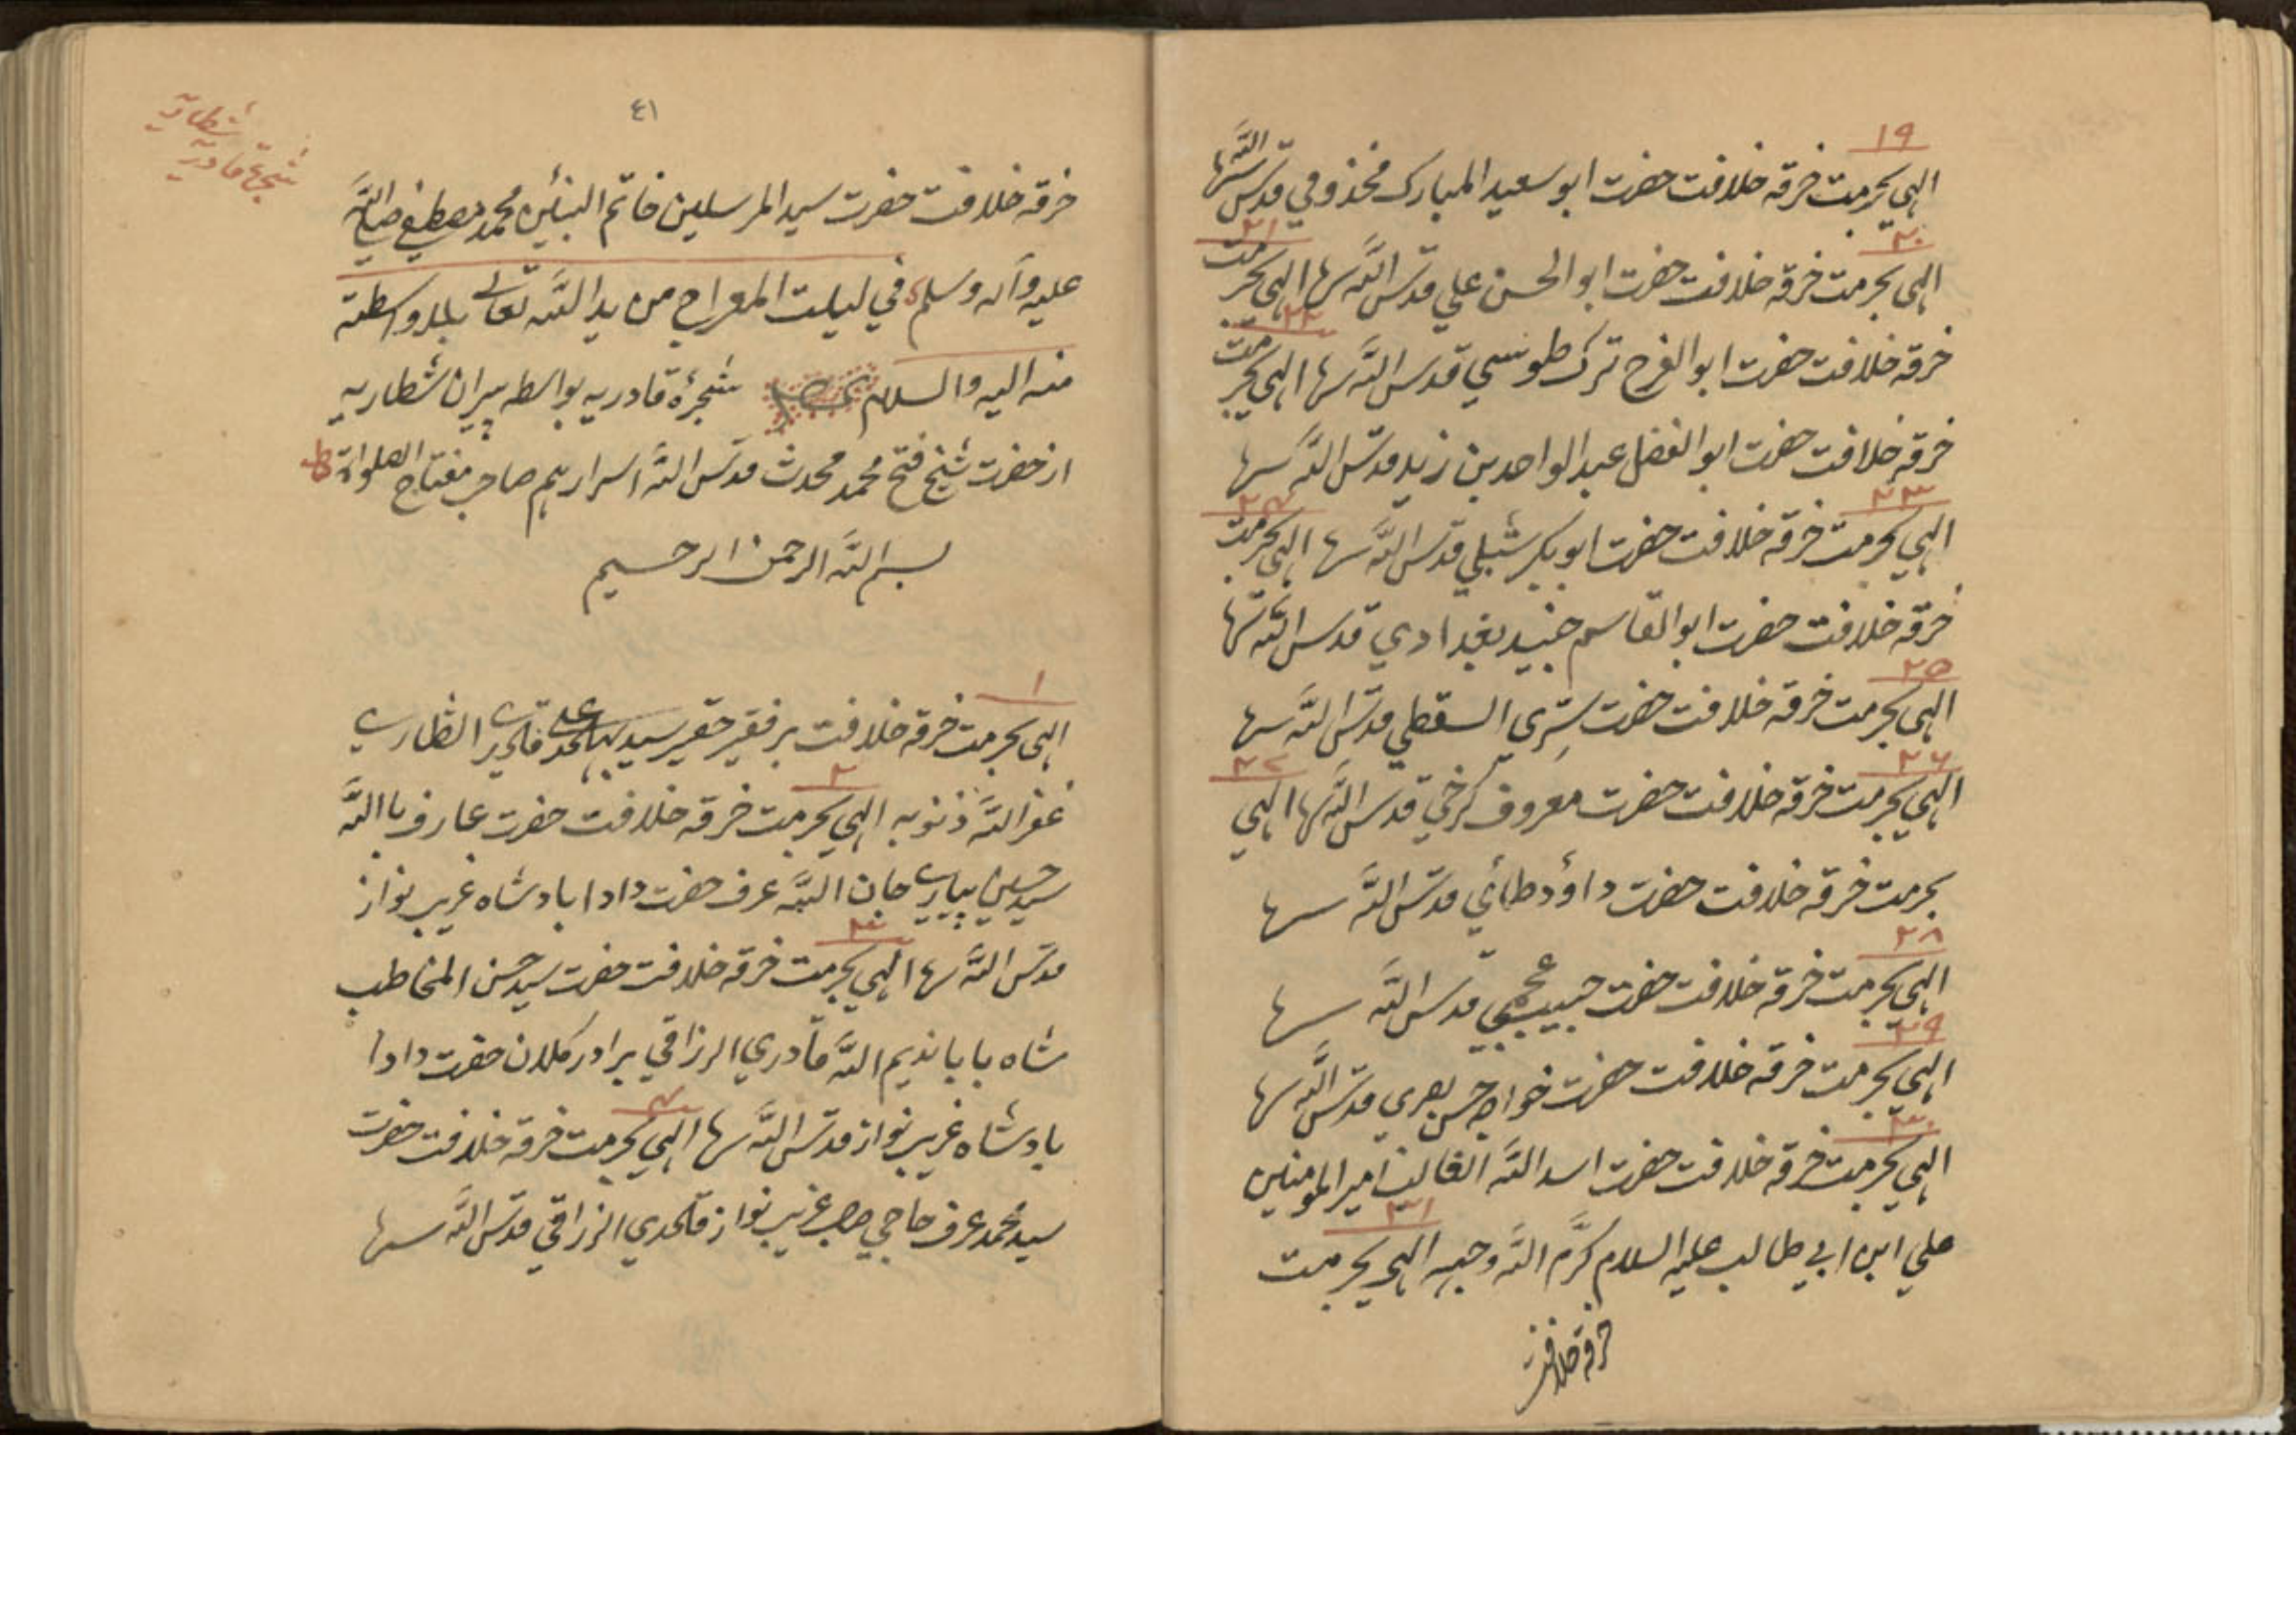 ۱۹
الهي بحرمت خرقه خلافت حضرت ابو سعيد المبارك مخذومي قدس الله سرہا
۲۰ ۲۱
الهي بحرمت خرقه خلافت حضرت ابو الحسن علي قدس الله سرہا الهي بحرمت
۲۲
خرقه خلافت حضرت ابو الفرح ترك طوسي قدس الله سرہا الهي بحرمت
خرقه خلافت حضرت ابو الفضل عبد الواحد بن زيد قدس الله سرہا
۲۳ ۲۴
الهي بحرمت خرقه خلافت حضرت ابو بكر شبلي قدس الله سرہا الهي بحرمت
خرقه خلافت حضرت ابو القاسم جنيد بغدادي قدس الله سرہا
۲۵
الهي بحرمت خرقه خلافت حضرت سِرّي السقطي قدس الله سرہا
۲۶ ۲۷
الهي بحرمت خرقه خلافت حضرت معروف كرخي قدس الله سرہا الهي
بحرمت خرقه خلافت حضرت داؤد طائي قدس الله سرہا
۲۸
الهي بحرمت خرقه خلافت حضرت حبيب عجمي قدس الله سرہا
۲۹
الهي بحرمت خرقه خلافت حضرت خواجه حسن بصري قدس الله سرہا
۳۰
الهي بحرمت خرقه خلافت حضرت اسد الله الغالب امير المومنين
۳۱
علي ابن ابي طالب عليه السلام كرّم الله وجهه الهي بحرمت
خرقه خلافت
٤١
شطاريه
شجرۀ قادريه
خرقه خلافت حضرت سيد المرسلين خاتم النبئين محمد مصطفي صلي الله
عليه وآله وسلم في ليلت المعراج من يد الله تعالى بلا واسطته
منه اليه والسلام شجرۀ قادريه بواسطه پيران شطاريه
از حضرت شيخ فتح محمد محدث قدس الله اسرارہم صاحب مفتاح الصلواة
بسم الله الرحمن الرحيم
۱
الهي بحرمت خرقه خلافت بر فقير حقير سيد علي قادري الشطاري
۲
غفر الله ذنوبه الهي بحرمت خرقه خلافت حضرت عارف باالله
سيد حسين پيارے جان الله عرف حضرت دادا بادشاه غريب نواز
۳
قدس الله سرہا الهي بحرمت خرقه خلافت حضرت سيد حسن المخاطب
شاه بابا نديم الله قادري الرزاقي برادر كلان حضرت دادا
۴
بادشاه غريب نواز قدس الله سرہا الهي بحرمت خرقه خلافت حضرت
سيد محمد عرف حاجي صاحب غريب نواز قادري الرزاقي قدس الله سرہا